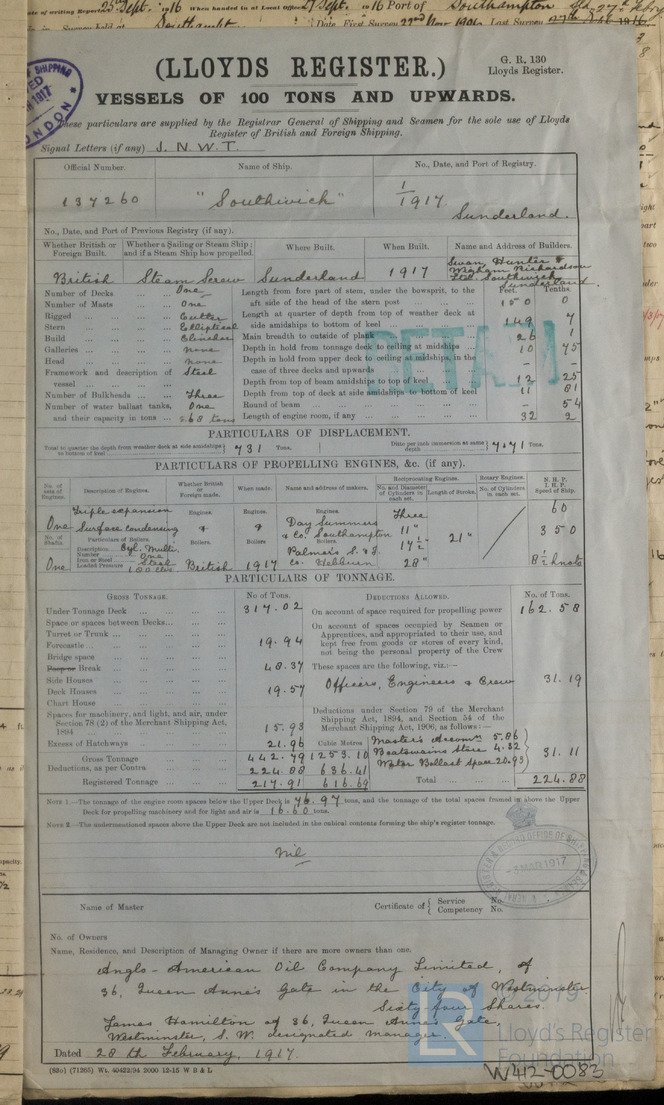 25 Sept. 1916 When handed in at Local Office 27 Sept. 1916 Port of Southampton
Date, First Survey 22nd Nov 1906 Last Survey
(LLOYDS REGISTER.)
G. R. 130
Lloyds Register.
VESSELS OF 100 TONS AND UPWARDS.
These particulars are supplied by the Registrar General of Shipping and Seamen for the sole use of Lloyds
Register of British and Foreign Shipping.
Signal Letters (if any) J. N. W. T.
Official Number. Name of Ship. No., Date, and Port of Registry.
137260 "Southwick" 1/1917 Sunderland.
No., Date, and Port of Previous Registry (if any).
Whether British or Foreign Built. Whether a Sailing or Steam Ship; and if a Steam Ship how propelled. Where Built. When Built. Name and Address of Builders.
British Steam Screw Sunderland 1917 Swan, Hunter & Wigham Richardson Ltd. Southwick, Sunderland
Feet. Tenths.
Number of Decks One Length from fore part of stem, under the bowsprit, to the aft side of the head of the stern post 150 0
Number of Masts One
Rigged Cutter Length at quarter of depth from top of weather deck at side amidships to bottom of keel 149 7
Stern Elliptical
Build Clincher Main breadth to outside of plank 26 1
Galleries none Depth in hold from tonnage deck to ceiling at midships 10 75
Head none Depth in hold from upper deck to ceiling at midships, in the case of three decks and upwards – –
Framework and description of vessel Steel
Depth from top of beam amidships to top of keel 12 25
Number of Bulkheads Three Depth from top of deck at side amidships to bottom of keel 11 81
Number of water ballast tanks, One Round of beam – 54
and their capacity in tons 268 tons Length of engine room, if any 32 2
PARTICULARS OF DISPLACEMENT.
Total to quarter the depth from weather deck at side amidships to bottom of keel 731 Tons. Ditto per inch immersion at same depth 7.71 Tons.
PARTICULARS OF PROPELLING ENGINES, &c. (if any).
No. of sets of Engines. Description of Engines. Whether British or Foreign made. When made. Name and address of makers. Reciprocating Engines. No. and Diameter of Cylinders in each set. Length of Stroke. Rotary Engines. No. of Cylinders in each set. N. H. P. I. H. P. Speed of Ship.
Triple expansion Engines. Engines. Engines. Three 60
One Surface condensing & & Day Summers & Co. Southampton 11" 21" 350
No. of Shafts. Particulars of Boilers. Boilers. Boilers Boilers. 17½
Description Cyl. Multi. Palmer's S. & I.
Number One
Iron or Steel Steel
One Loaded Pressure British 1917 Co. Hebburn 28" 8½ knots
PARTICULARS OF TONNAGE.
GROSS TONNAGE. No of Tons. DEDUCTIONS ALLOWED. No. of Tons.
Under Tonnage Deck 317.02 On account of space required for propelling power 162.58
Space or spaces between Decks
Turret or Trunk On account of spaces occupied by Seamen or Apprentices, and appropriated to their use, and kept free from goods or stores of every kind, not being the personal property of the Crew
Forecastle 19.94
Bridge space
Poop or Break 48.37 These spaces are the following, viz.:—
Side Houses
Deck Houses 19.57 Officers, Engineers & Crew 31.19
Chart House
Spaces for machinery, and light, and air, under Section 78 (2) of the Merchant Shipping Act, 1894 15.93 Deductions under Section 79 of the Merchant Shipping Act, 1894, and Section 54 of the Merchant Shipping Act, 1906, as follows:—
Excess of Hatchways 21.96 Cubic Metres Master's Accomn. 5.86
Gross Tonnage 442.79 1253.10 Boatswains Store 4.32 31.11
Deductions, as per Contra 224.88 636.41 Water Ballast Space 20.93
Registered Tonnage 217.91 616.69 Total 224.88
NOTE 1.—The tonnage of the engine room spaces below the Upper Deck is 76.97 tons, and the tonnage of the total spaces framed in above the Upper
Deck for propelling machinery and for light and air is 16.60 tons.
NOTE 2.—The undermentioned spaces above the Upper Deck are not included in the cubical contents forming the ship's register tonnage.
Nil
-3 MAR 1917
Name of Master Certificate of Service No. Competency No.
No. of Owners
Name, Residence, and Description of Managing Owner if there are more owners than one.
Anglo-American Oil Company Limited, of
36, Queen Anne's Gate in the City of Westminster
Sixty-four Shares.
James Hamilton of 36, Queen Anne's Gate,
Westminster, S. W. designated manager.
Dated 28th February, 1917.
(83o) (71265) Wt. 40422/94 2000 12-15 W B & L
© 2019
LR Lloyd's Register
Foundation
W412-0083